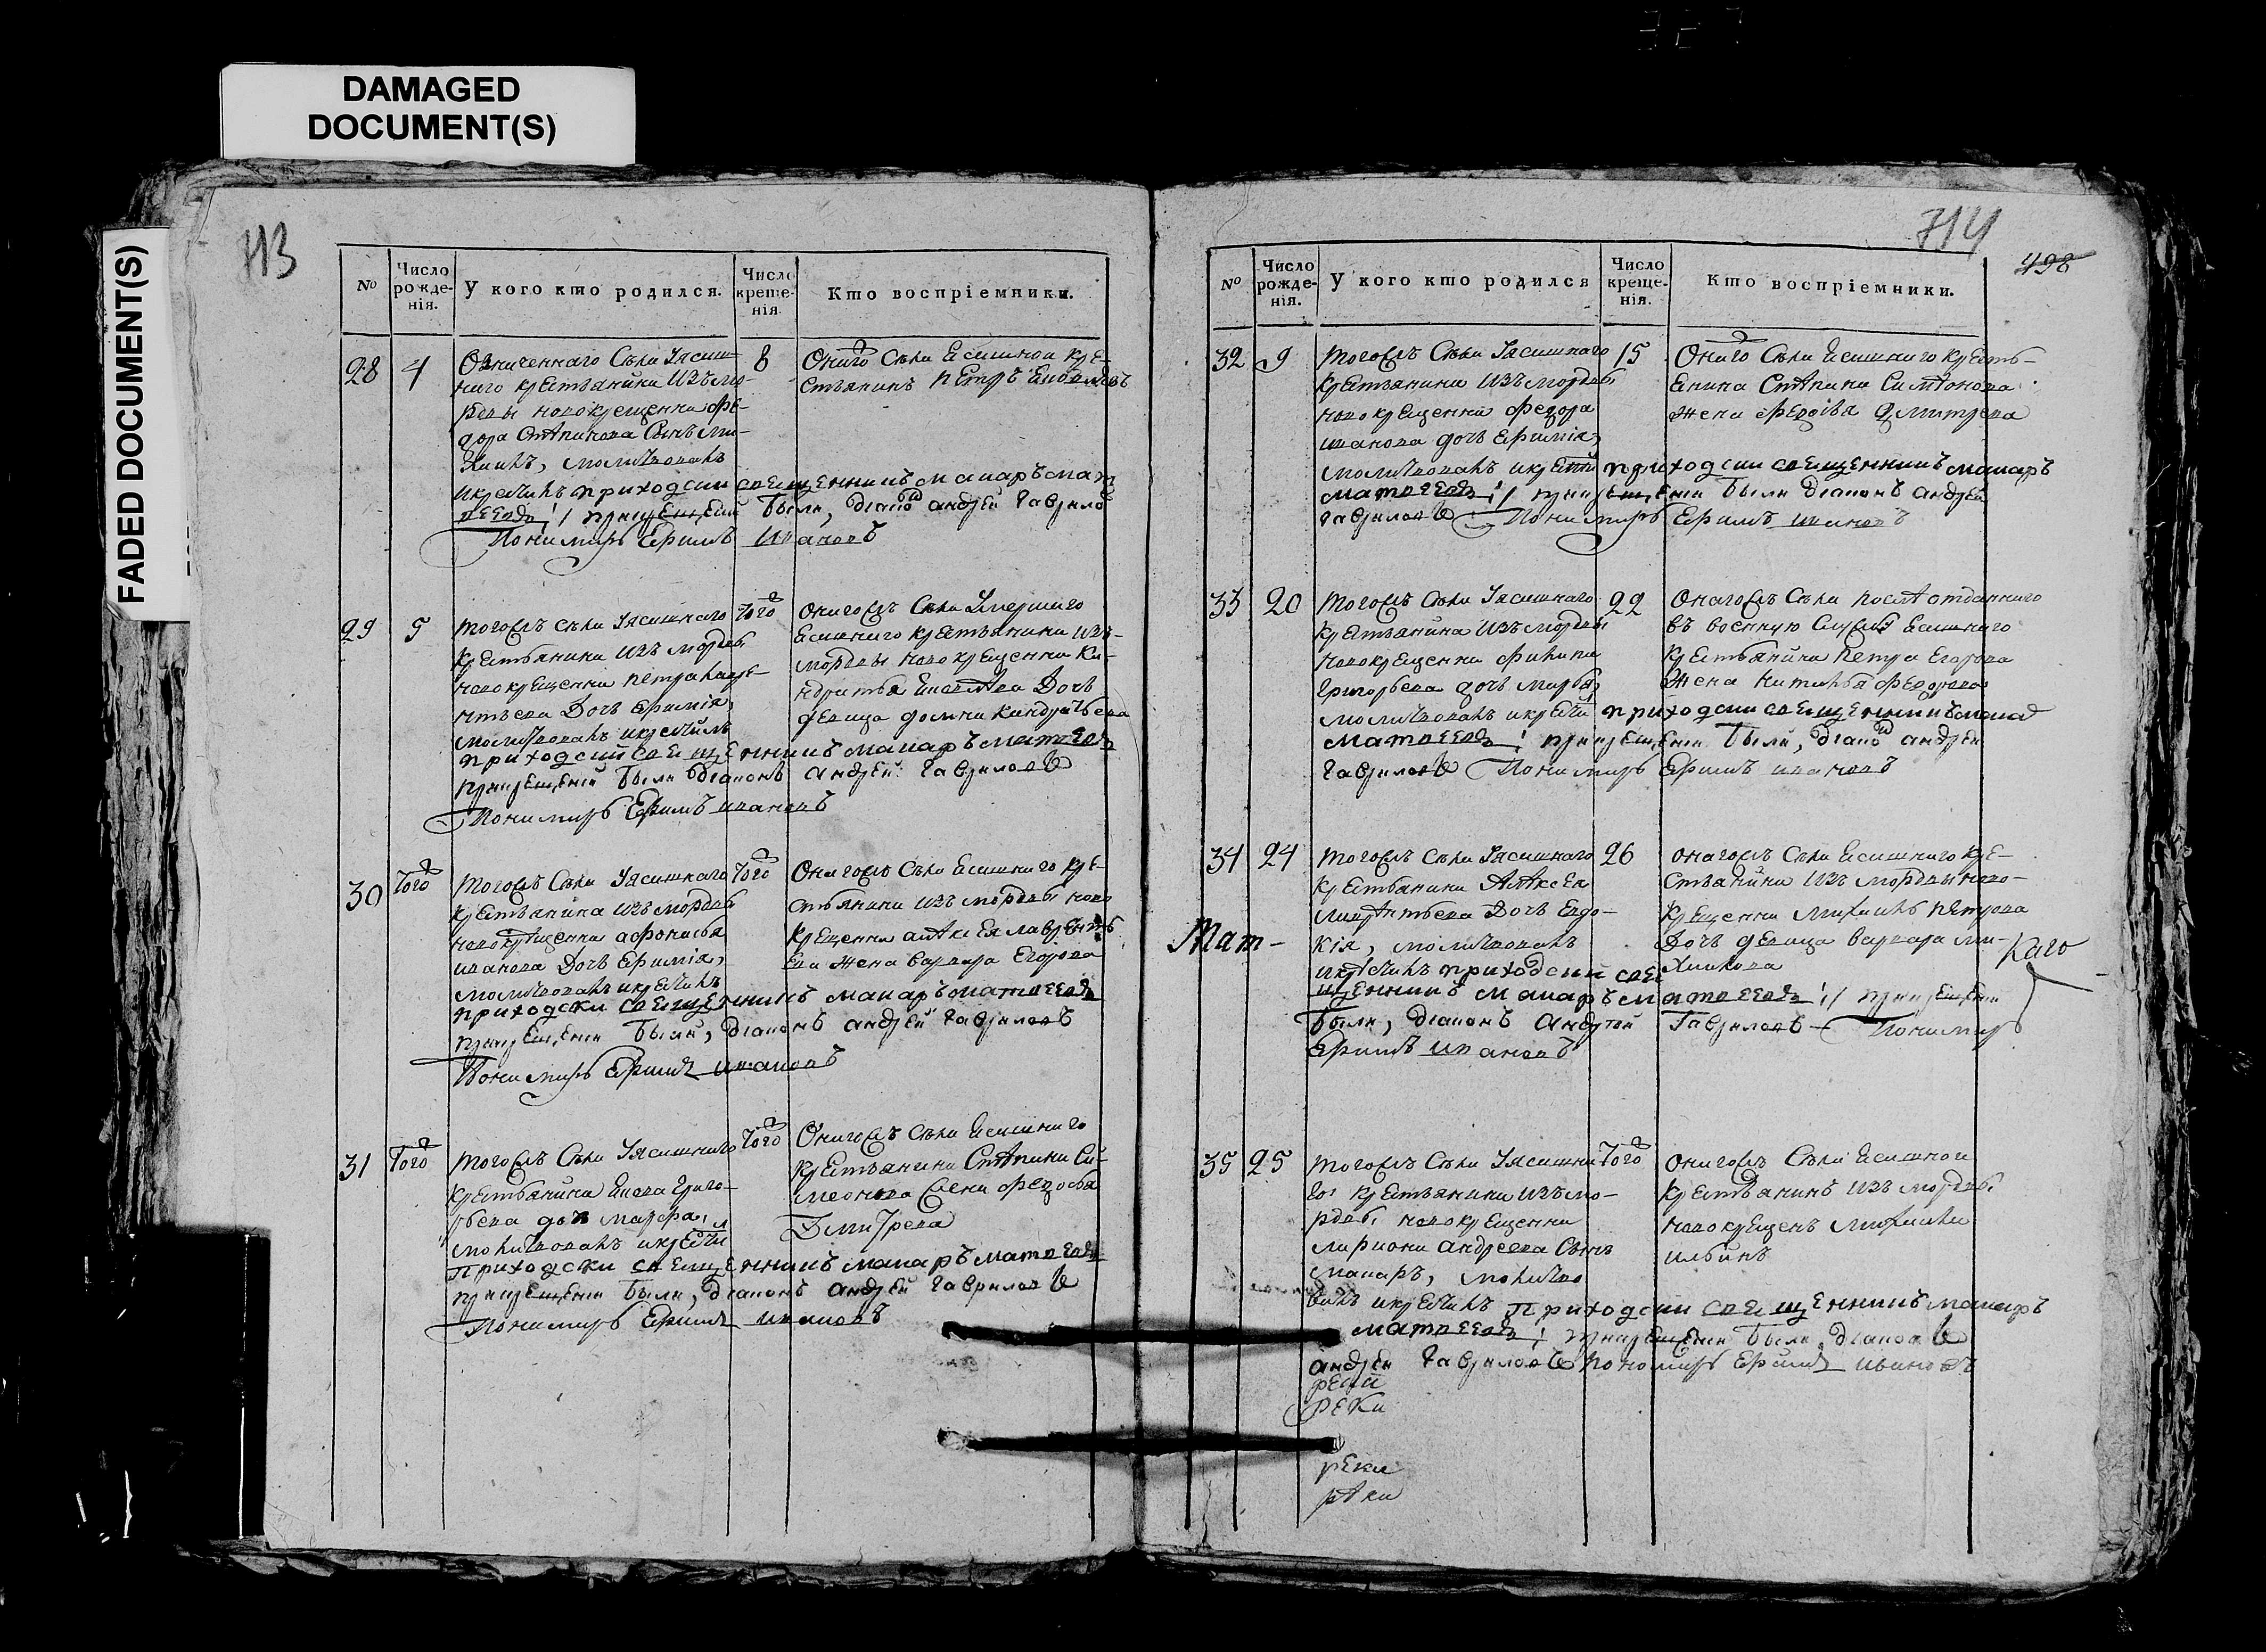 DAMAGED
DOCUMENT(S)
FADED DOCUMENT(S)
713
№
Число рожде-нія.
У кого кто родился.
Число креще-нія.
Кто воспріемники.
28 4
Означеннаго Села Ясаш-
наго крестьянина изъ мо-
рдвы новокрещенна фе-
дора Степанова Сынъ ми-
хаилъ, молитвовалъ
и крестилъ приходски священникъ макаръ мат
веевъ // при крещеніи были, діаконъ андрей гаврилов
Пономарь Ефимъ ивановъ
8
Онаго Села Ясашнои кре-
стьянинъ петръ
29 5
тогожъ села Ясашнаго
крестьянина изъ мордвы
новокрещенна петра
Дочь ефимія,
молитвовалъ и крестилъ
приходский священникъ макаръ матвеевъ
при крещеніи были діаконъ андрей гавриловъ
Пономарь Ефимъ ивановъ
Того
Онагожъ Села Умершаго
Ясашнаго крестьянина изъ
мордвы новокрещенна Ки-
ндратья Дочь
девица домна Кандратьева
30 Того
Тогожъ Села Ясашнаго
крестьянина изъ мордвы
новокрещенна афонасья
иванова Дочь ефимія,
молитвовалъ и крестилъ
приходски священникъ макаръ матвеевъ
при крещеніи были, діаконъ андрей гавриловъ
Пономарь Ефимъ ивановъ
Того
Онагожъ Села Ясашнаго кре-
стьянина изъ мордвы ново
крещенна алексея лаврентъ
ева жена варвара Егорова
31 Того
Тогожъ Села Ясашнаго
крестьянина григо-
рьева дочь марфа,
молитвовалъ и крестил
приходски священникъ макаръ матвеевъ
при крещеніи были, діаконъ андрей гавриловъ
Пономарь Ефимъ ивановъ
Того
Онагожъ Села Ясашнаго
крестьянина Степана Си-
меонова жена федосья
Дмитрева
714
498
№
Число рожде-нія.
У кого кто родился
Число креще-нія.
Кто воспріемники.
32 9
тогожъ Села Ясашнаго
крестьянина изъ мордвы
новокрещенна федора
иванова дочь ефимія,
молитвовалъ и крестил приходски священникъ макаръ
матвеевъ // при крещеніи были діаконъ андрей
гавриловъ Пономарь Ефимъ ивановъ
15
Онаго Села Ясашнаго кресть-
янина Степана Симеонова
жена федосья дмитрева
33 20
тогожъ Села Ясашнаго
крестьянина изъ мордвы
новокрещенна филипа
григорьева дочь марья,
молитвовалъ и крести приходски священникъ мака
матвеевъ при крещеніи были, діако андрей
гавриловъ Пономарь Ефимъ ивановъ
22
Онагожъ Села после отданнаго
въ военную Службу Ясашнаго
крестьянина петра Егорова
жена наталья федорова
34 24
тогожъ Села Ясашнаго
крестьянина Алексея
Дочь Евдо-
кія, молитвовалъ
и крестилъ приходский свя
щенникъ макаръ матвеевъ // при крещеніи
были, діаконъ Андрей Гавриловъ Пономарь
Ефимъ ивановъ
26
онагожъ Села Ясашнаго кре-
стьянина изъ мордвы ново-
крещенна михаилы петрова
Дочь девица варвара ми-
хаилова
Мат-
каго
35 25
тогожъ Села Ясашна
го крестьянина изъ мо-
рдвы новокрещенна
лариона андреева Сынъ
макаръ, молитво
валъ и крестилъ приходски священникъ макаръ
матвеевъ при крещеніи были, діаконъ
андрей гавриловъ пономарь Ефимъ ивановъ
Того
онагожъ Села Ясашнои
крестьянинъ изъ мордвы
новокрещенъ михаила
ильинъ
реки
реки
реки